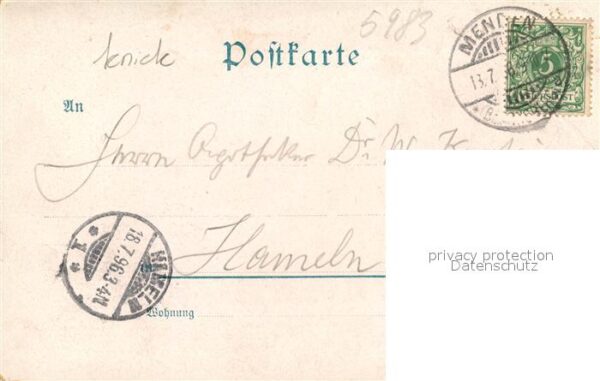 5983
knick
Postkarte
MENDEN
13.7.
5
An
Herrn Apotheker Dr. W.
Hameln
privacy protection
Datenschutz
HAMELN
18.7.96.3-4N.
* 1 *
in
Wohnung